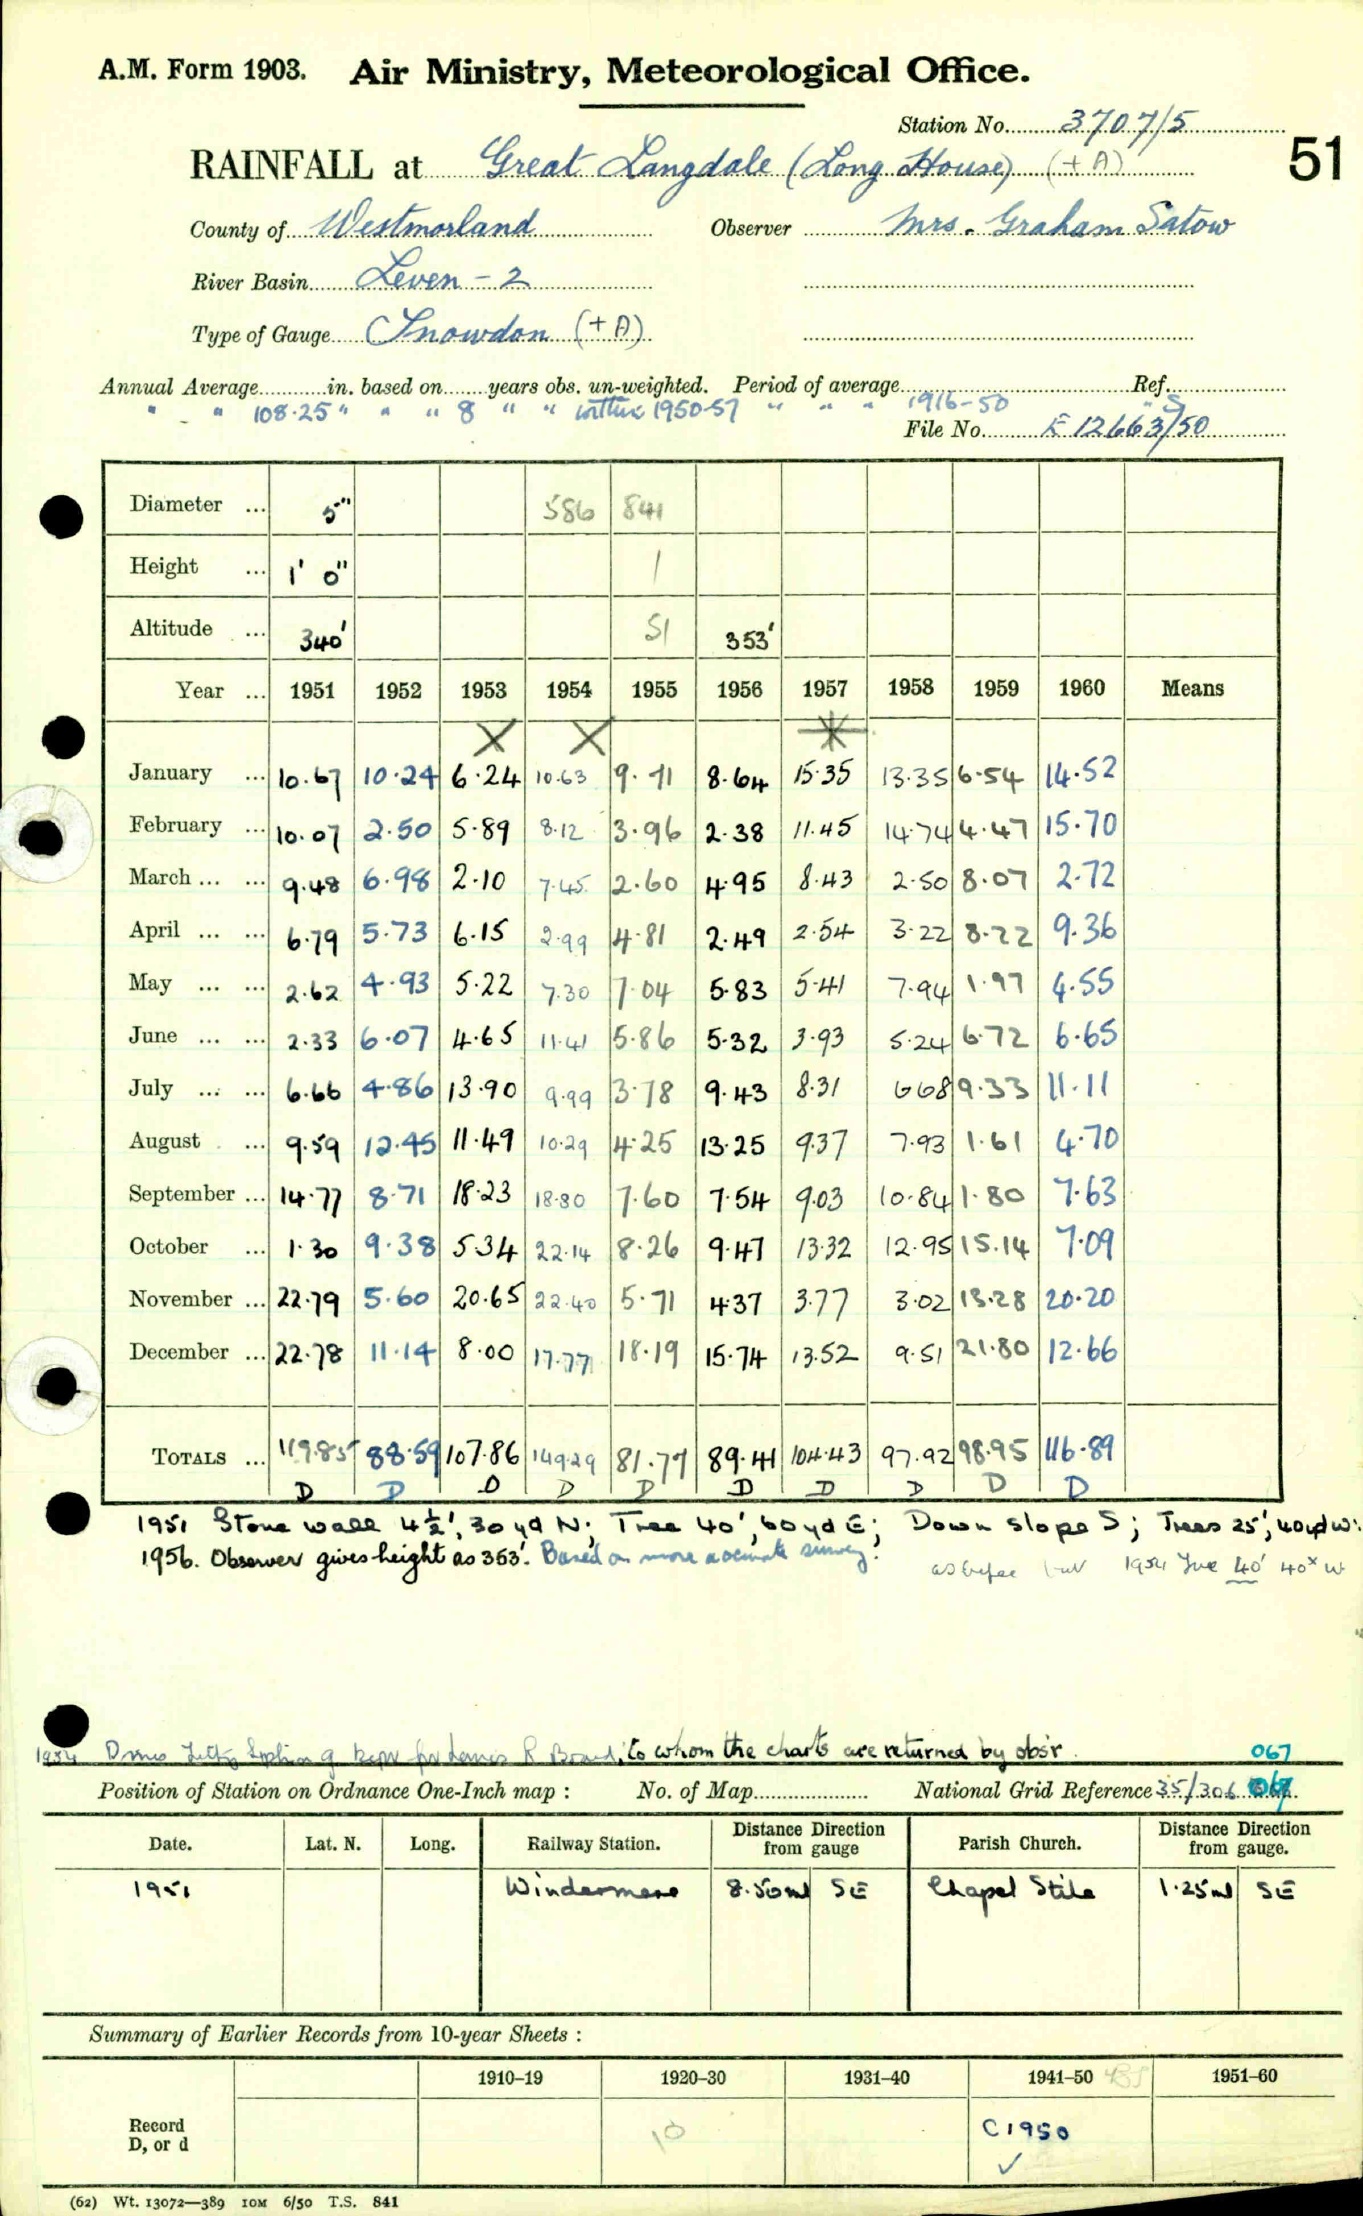 A.M. Form 1903. Air Ministry, Meteorological Office.
Station No. 3707/5
51
RAINFALL at Great Langdale (Long House) (+A)
County of Westmorland Observer Mrs. Graham Satow
River Basin Leven - 2
Type of Gauge Snowdon (+A)
Annual Average in. based on years obs. un-weighted. Period of average Ref.
" " 108.25" " " 8 " " within 1950-57 " " " 1916-50 " S
File No. E 12663/50
Diameter ... 5" 586 841
Height ... 1' 0" 1
Altitude ... 340' 51 353'
Year ... 1951 1952 1953 1954 1955 1956 1957 1958 1959 1960 Means
X X
January ... 10.67 10.24 6.24 10.63 9.71 8.64 15.35 13.35 6.54 14.52
February ... 10.07 2.50 5.89 8.12 3.96 2.38 11.45 14.74 4.47 15.70
March ... ... 9.48 6.98 2.10 7.45 2.60 4.95 8.43 2.50 8.07 2.72
April ... ... 6.79 5.73 6.15 2.99 4.81 2.49 2.54 3.22 8.22 9.36
May ... ... 2.62 4.93 5.22 7.30 7.04 5.83 5.41 7.94 1.97 4.55
June ... ... 2.33 6.07 4.65 11.41 5.86 5.32 3.93 5.24 6.72 6.65
July ... ... 6.66 4.86 13.90 9.99 3.78 9.43 8.31 6.68 9.33 11.11
August ... 9.59 12.45 11.49 10.29 4.25 13.25 9.37 7.93 1.61 4.70
September ... 14.77 8.71 18.23 18.80 7.60 7.54 9.03 10.84 1.80 7.63
October ... 1.30 9.38 5.34 22.14 8.26 9.47 13.32 12.95 15.14 7.09
November ... 22.79 5.60 20.65 22.40 5.71 4.37 3.77 3.02 13.28 20.20
December ... 22.78 11.14 8.00 17.77 18.19 15.74 13.52 9.51 21.80 12.66
TOTALS ... 119.85 88.59 107.86 149.29 81.77 89.41 104.43 97.92 98.95 116.89
D D D D D D D D D D
1951 Stone wall 4½', 30 yd N; Tree 40', 60 yd E; Down slope S; Trees 25', 40 yd W.
1956. Observer gives height as 353'. Based on more accurate survey.
as before but 1954 Tree 40' 40ˣ W
1954 to whom the charts are returned by obsr.
067
Position of Station on Ordnance One-Inch map : No. of Map National Grid Reference 35/306
Date. Lat. N. Long. Railway Station. Distance from Direction gauge Parish Church. Distance from Direction gauge.
1951 Windermere 8.50ml SE Chapel Stile 1.25ml SE
Summary of Earlier Records from 10-year Sheets :
1910–19 1920–30 1931–40 1941–50 1951–60
Record
D, or d
10
C 1950
✓
(62) Wt. 13072—389 10M 6/50 T.S. 841